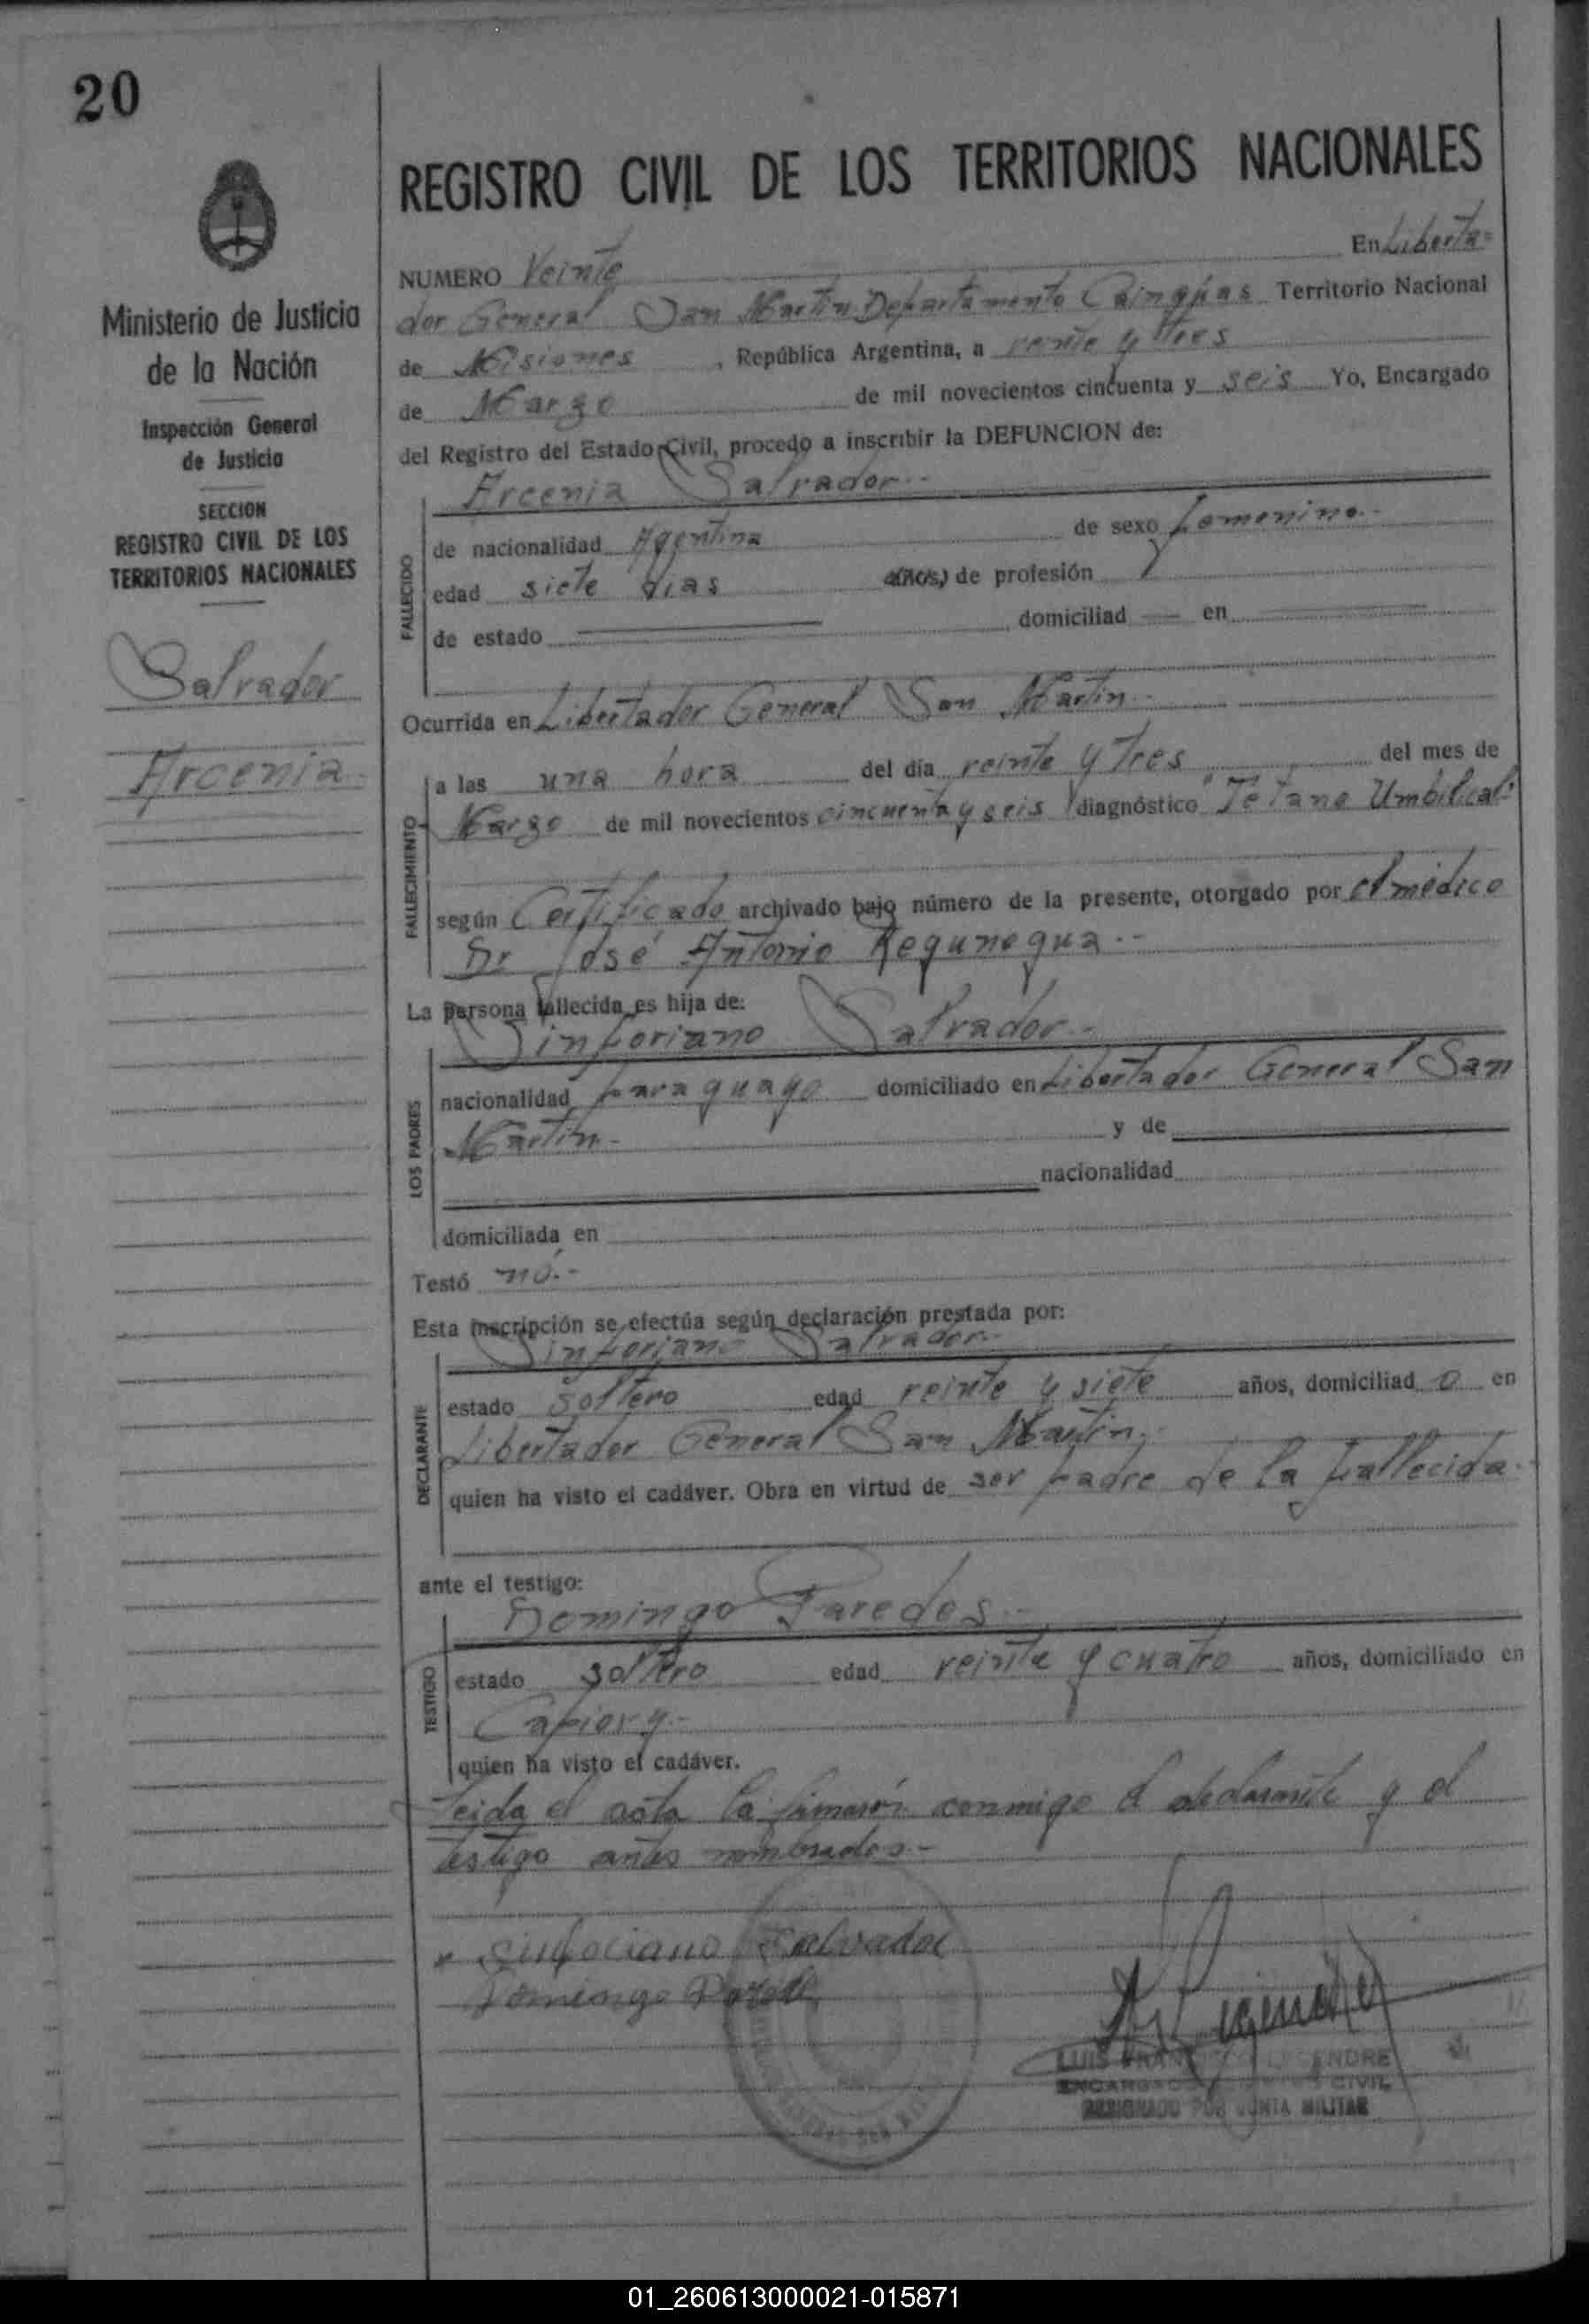 20
Ministerio de Justicia
de la Nación
Inspección General
de Justicia
SECCION
REGISTRO CIVIL DE LOS
TERRITORIOS NACIONALES
Salvador
Arcenia
REGISTRO CIVIL DE LOS TERRITORIOS NACIONALES
NUMERO Veinte En Liberta=
dor General San Martin Departamento Cainguas Territorio Nacional
de Misiones, República Argentina, a veinte y tres
de Marzo de mil novecientos cincuenta y seis Yo, Encargado
del Registro del Estado Civil, procedo a inscribir la DEFUNCION de:
Arcenia Salvador.-
FALLECIDO
de nacionalidad Agentina de sexo femenino.-
edad siete dias años, de profesión
de estado domiciliad en
Ocurrida en Libertador General San Martin.-
FALLECIMIENTO
a las una hora del día veinte y tres del mes de
Marzo de mil novecientos cincuenta y seis diagnóstico "Tetano Umbilical"
según Certificado archivado bajo número de la presente, otorgado por el médico
Dr José Antonio.-
La persona fallecida es hija de:
Sinforiano Salvador.-
LOS PADRES
nacionalidad paraguayo domiciliado en Libertador General San
Martin.- y de
nacionalidad
domiciliada en
Testó nó.-
Esta inscripción se efectúa según declaración prestada por:
Sinforiano Salvador.-
DECLARANTE
estado soltero edad veinte y siete años, domiciliad o en
Libertador General San Martin.-
quien ha visto el cadáver. Obra en virtud de ser padre de la fallecida.-
ante el testigo:
Domingo Paredes.-
TESTIGO
estado soltero edad veinte y cuatro años, domiciliado en
Capiovy.-
quien ha visto el cadáver.
Leida el acta la firmaron conmigo el declarante y el
testigo antes nombrados.-
Sinforiano Salvador
Domingo
LUIS FRANCISCO LEGENDRE
ENCARGADO REGISTRO CIVIL
DESIGNADO POR JUNTA MILITAR
01_260613000021-015871